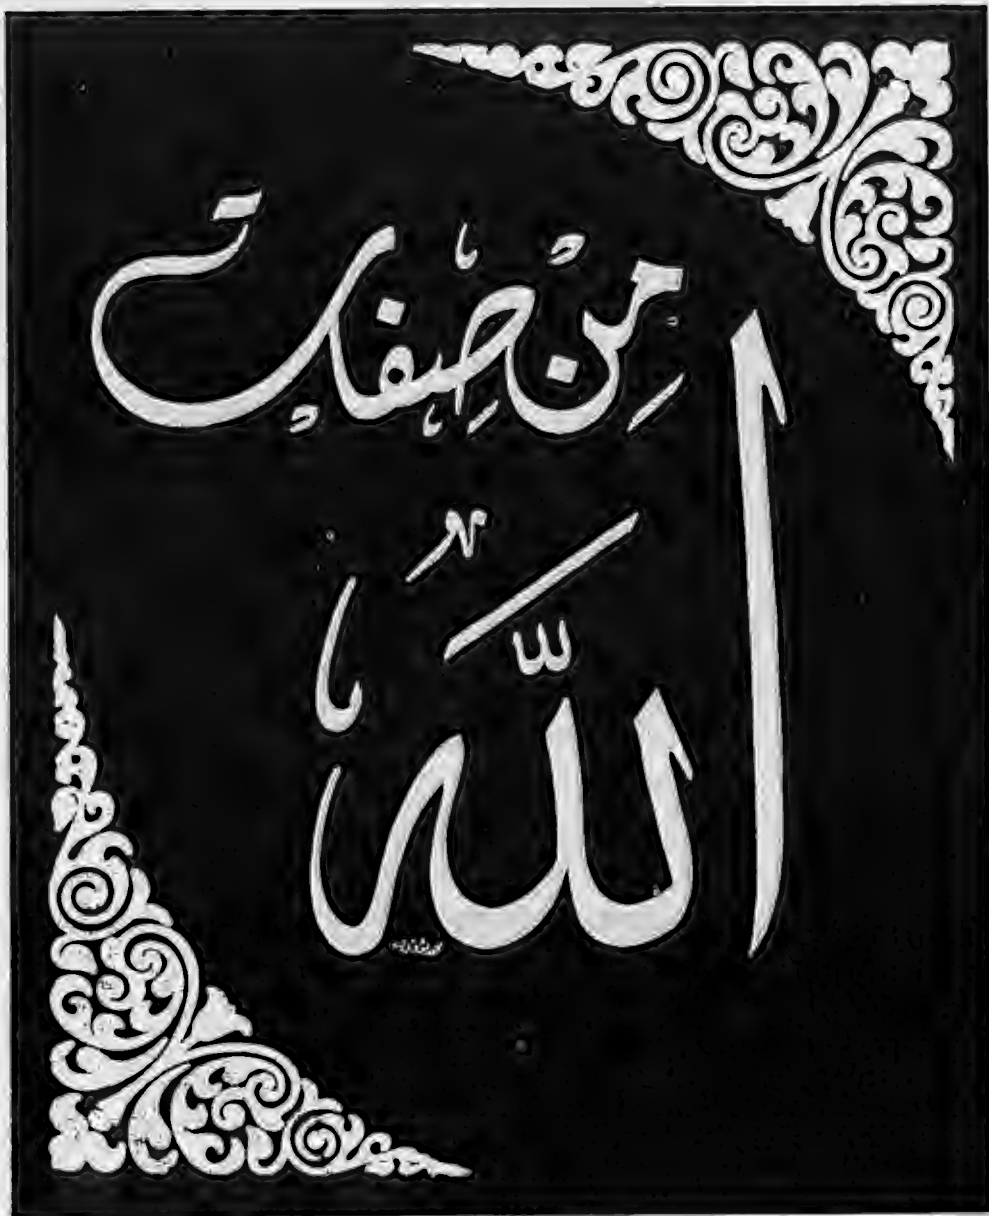 مِنْ صِفَاتِ
اللَّهِ